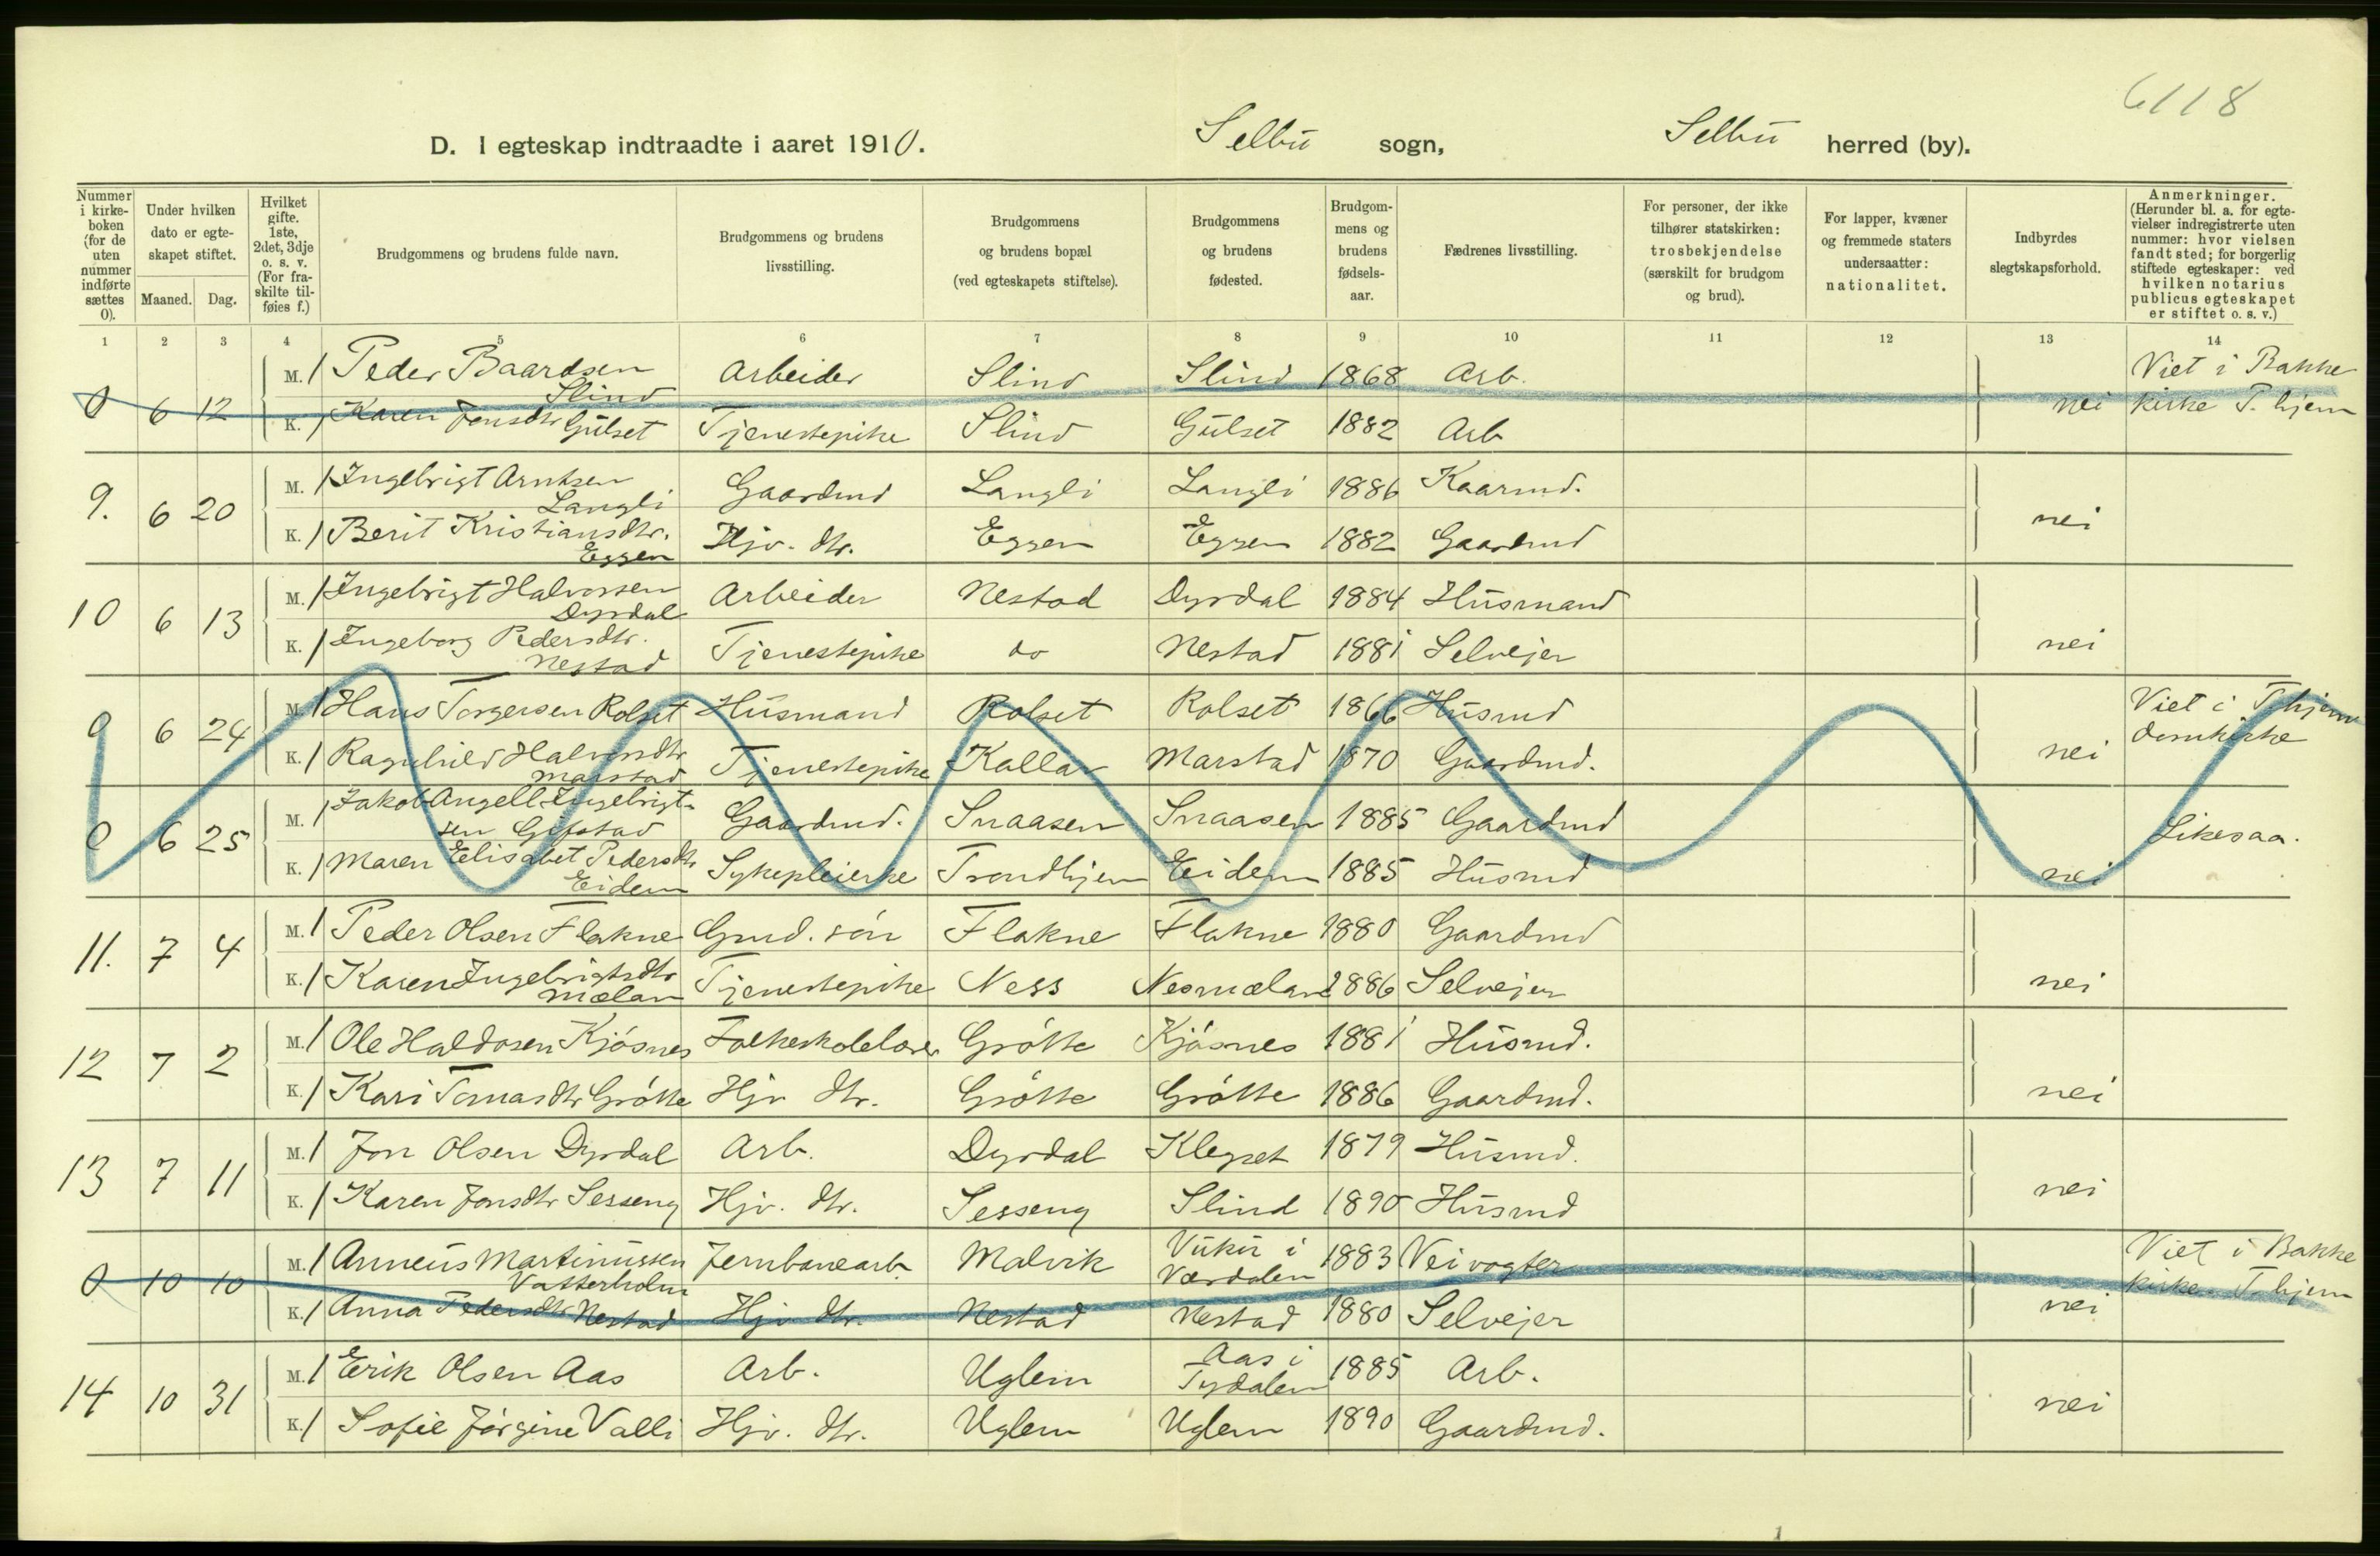 6118
D. I egteskap indtraadte i aaret 1910. Selbu sogn, Selbu herred (by).
Nummer i kirkeboken (for de uten nummer indførte sættes 0).
Under hvilken dato er egteskapet stiftet.
Maaned. Dag.
Hvilket gifte. 1ste, 2det, 3dje o. s. v. (For fraskilte tilføies f.)
Brudgommens og brudens fulde navn.
Brudgommens og brudens livsstilling.
Brudgommens og brudens bopæl (ved egteskapets stiftelse).
Brudgommens og brudens fødested.
Brudgommens og brudens fødselsaar.
Fædrenes livsstilling.
For personer, der ikke tilhører statskirken: trosbekjendelse (særskilt for brudgom og brud).
For lapper, kvæner og fremmede staters undersaatter: nationalitet.
Indbyrdes slegtskapsforhold.
Anmerkninger. (Herunder bl. a. for egtevielser indregistrerte uten nummer: hvor vielsen fandt sted; for borgerlig stiftede egteskaper: ved hvilken notarius publicus egteskapet er stiftet o. s. v.)
1 2 3 4 5 6 7 8 9 10 11 12 13 14
0 6 12 M. 1 Peder Baardsen Slind Arbeider Slind Slind 1868 Arb. Viet i Bakke
K. 1 Karen Jonsdtr Gulset Tjenestepike Slind Gulset 1882 Arb nei kirke T.hjem
9. 6 20 M. 1 Ingebrigt Arntsen Langli Gaardmd Langli Langli 1886 Kaarmd.
K. 1 Berit Kristiansdtr. Eggen Hjv. dtr. Eggen Eggen 1882 Gaardmd nei
10 6 13 M. 1 Ingebrigt Halvorsen Dyrdal Arbeider Nestad Dyrdal 1884 Husmand
K. 1 Ingeborg Pedersdtr. Nestad Tjenestepike do Nestad 1881 Selveier nei
0 6 24 M. 1 Hans Torgersen Rolset Husmand Rolset Rolset 1866 Husmd Viet i T.hjem
K. 1 Ragnhild Halvorsdtr Marstad Tjenestepike Kallar Marstad 1870 Gaardmd. nei domkirke
0 6 25 M. 1 Jakob Angell Ingebrigtsen Gifstad Gaardmd. Snaasen Snaasen 1885 Gaardmd Likesaa.
K. 1 Maren Elisabet Pedersdtr Eidem Sykepleierske Trondhjem Eidem 1885 Husmd nei
11. 7 4 M. 1 Peder Olsen Flakne Gmd. søn Flakne Flakne 1880 Gaardmd
K. 1 Karen Ingebrigtsdtr Mælan Tjenestepike Ness Nesmælan 1886 Selvejer nei
12 7 2 M. 1 Ole Haldosen Kjøsnes Folkeskolelærer Grøtte Kjøsnes 1881 Husmd.
K. 1 Kari Tomasdtr Grøtte Hjv dtr. Grøtte Grøtte 1886 Gaardmd. nei
13 7 11 M. 1 Jon Olsen Dyrdal Arb. Dyrdal Klegset 1879 Husmd.
K. 1 Karen Jonsdtr Sesseng Hjv. dtr. Sesseng Slind 1890 Husmd nei
0 10 10 M. 1 Arneus Martinussen Vatterholm Jernbanearb. Malvik Vuku i Værdalen 1883 Veivogter Viet i Bakke
K. 1 Anna Pedersdtr Nestad Hjv dtr. Nestad Nestad 1880 Selvejer nei kirke T.hjem
14 10 31 M. 1 Erik Olsen Aas Arb. Uglem Aas i Tydalen 1885 Arb.
K. 1 Sofie Jørgine Valli Hjv. dtr. Uglem Uglem 1890 Gaardmd. nei
1